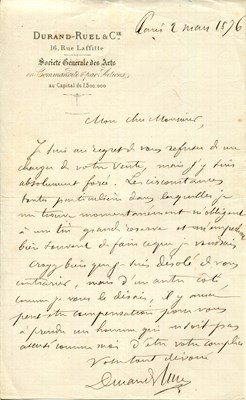 Paris 2 mars 1876
DURAND-RUEL & Cie
16, Rue Laffitte
Société Générale des Arts
en Commandite & par Actions
au Capital de
Mon cher Monsieur,
Je suis au regret de vous refuser de me
charger de votre vente, mais j'y suis
absolument forcé. Les circonstances
toutes particulières dans lesquelles je
me trouve momentanément m'obligent
à une très grande réserve et m'empêchent
bien souvent de faire ce que je voudrais
Croyez bien que je suis désolé de vous
contrarier, mais d'un autre côté,
comme je vous le disais, il y aura
peut être compensation pour vous
à prendre un homme qui ne soit pas
accusé comme moi d'être votre complice
Votre tout dévoué
Durand Ruel